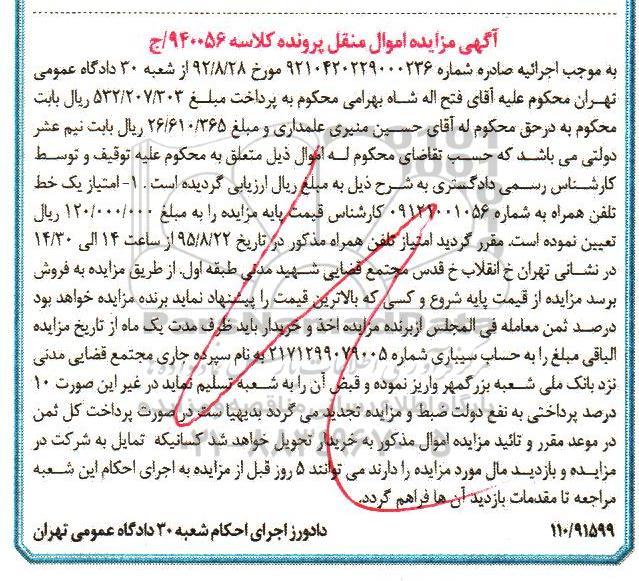 آگهی مزایده اموال منقل پرونده کلاسه ۹۴۰۰۵۶/ج
به موجب اجرائیه صادره شماره ۹۲۱۰۴۲۰۲۲۹۰۰۰۲۳۶ مورخ ۹۲/۸/۲۸ از شعبه ۳۰ دادگاه عمومی
تهران محکوم علیه آقای فتح اله شاه بهرامی محکوم به پرداخت مبلغ ۵۳۲/۲۰۷/۳۰۳ ریال بابت
محکوم به درحق محکوم له آقای حسین منیری علمداری و مبلغ ۲۶/۶۱۰/۳۶۵ ریال بابت نیم عشر
دولتی می باشد که حسب تقاضای محکوم له اموال ذیل متعلق به محکوم علیه توقیف و توسط
کارشناس رسمی دادگستری به شرح ذیل به مبلغ ریال ارزیابی گردیده است . ۱- امتیاز یک خط
تلفن همراه به شماره ۰۹۱۲۷۰۰۱۰۵۶ کارشناس قیمت پایه مزایده را به مبلغ ۱۲۰/۰۰۰/۰۰۰ ریال
تعیین نموده است. مقرر گردید امتیاز تلفن همراه مذکور در تاریخ ۹۵/۸/۲۲ از ساعت ۱۴ الی ۱۴/۳۰
در نشانی تهران خ انقلاب خ قدس مجتمع قضایی شهید مدنی طبقه اول. از طریق مزایده به فروش
برسد مزایده از قیمت پایه شروع و کسی که بالاترین قیمت را پیشنهاد نماید برنده مزایده خواهد بود
درصد ثمن معامله فی المجلس ازبرنده مزایده اخذ و خریدار باید ظرف مدت یک ماه از تاریخ مزایده
الباقی مبلغ را به حساب سیباری شماره ۲۱۷۱۲۹۹۰۷۹۰۰۵ به نام سپرده جاری مجتمع قضایی مدنی
نزد بانک ملی شعبه بزرگمهر واریز نموده و قبض آن را به شعبه تسلیم نماید در غیر این صورت ۱۰
درصد پرداختی به نفع دولت ضبط و مزایده تجدید می گردد بدیهیا ست در صورت پرداخت کل ثمن
در موعد مقرر و تائید مزایده اموال مذکور به خریدار تحویل خواهد شد کسانیکه تمایل به شرکت در
مزایده و بازدید مال مورد مزایده را دارند می توانند ۵ روز قبل از مزایده به اجرای احکام این شعبه
مراجعه تا مقدمات بازدید آن ها فراهم گردد.
۱۱۰/۹۱۵۹۹ دادورز اجرای احکام شعبه ۳۰ دادگاه عمومی تهران